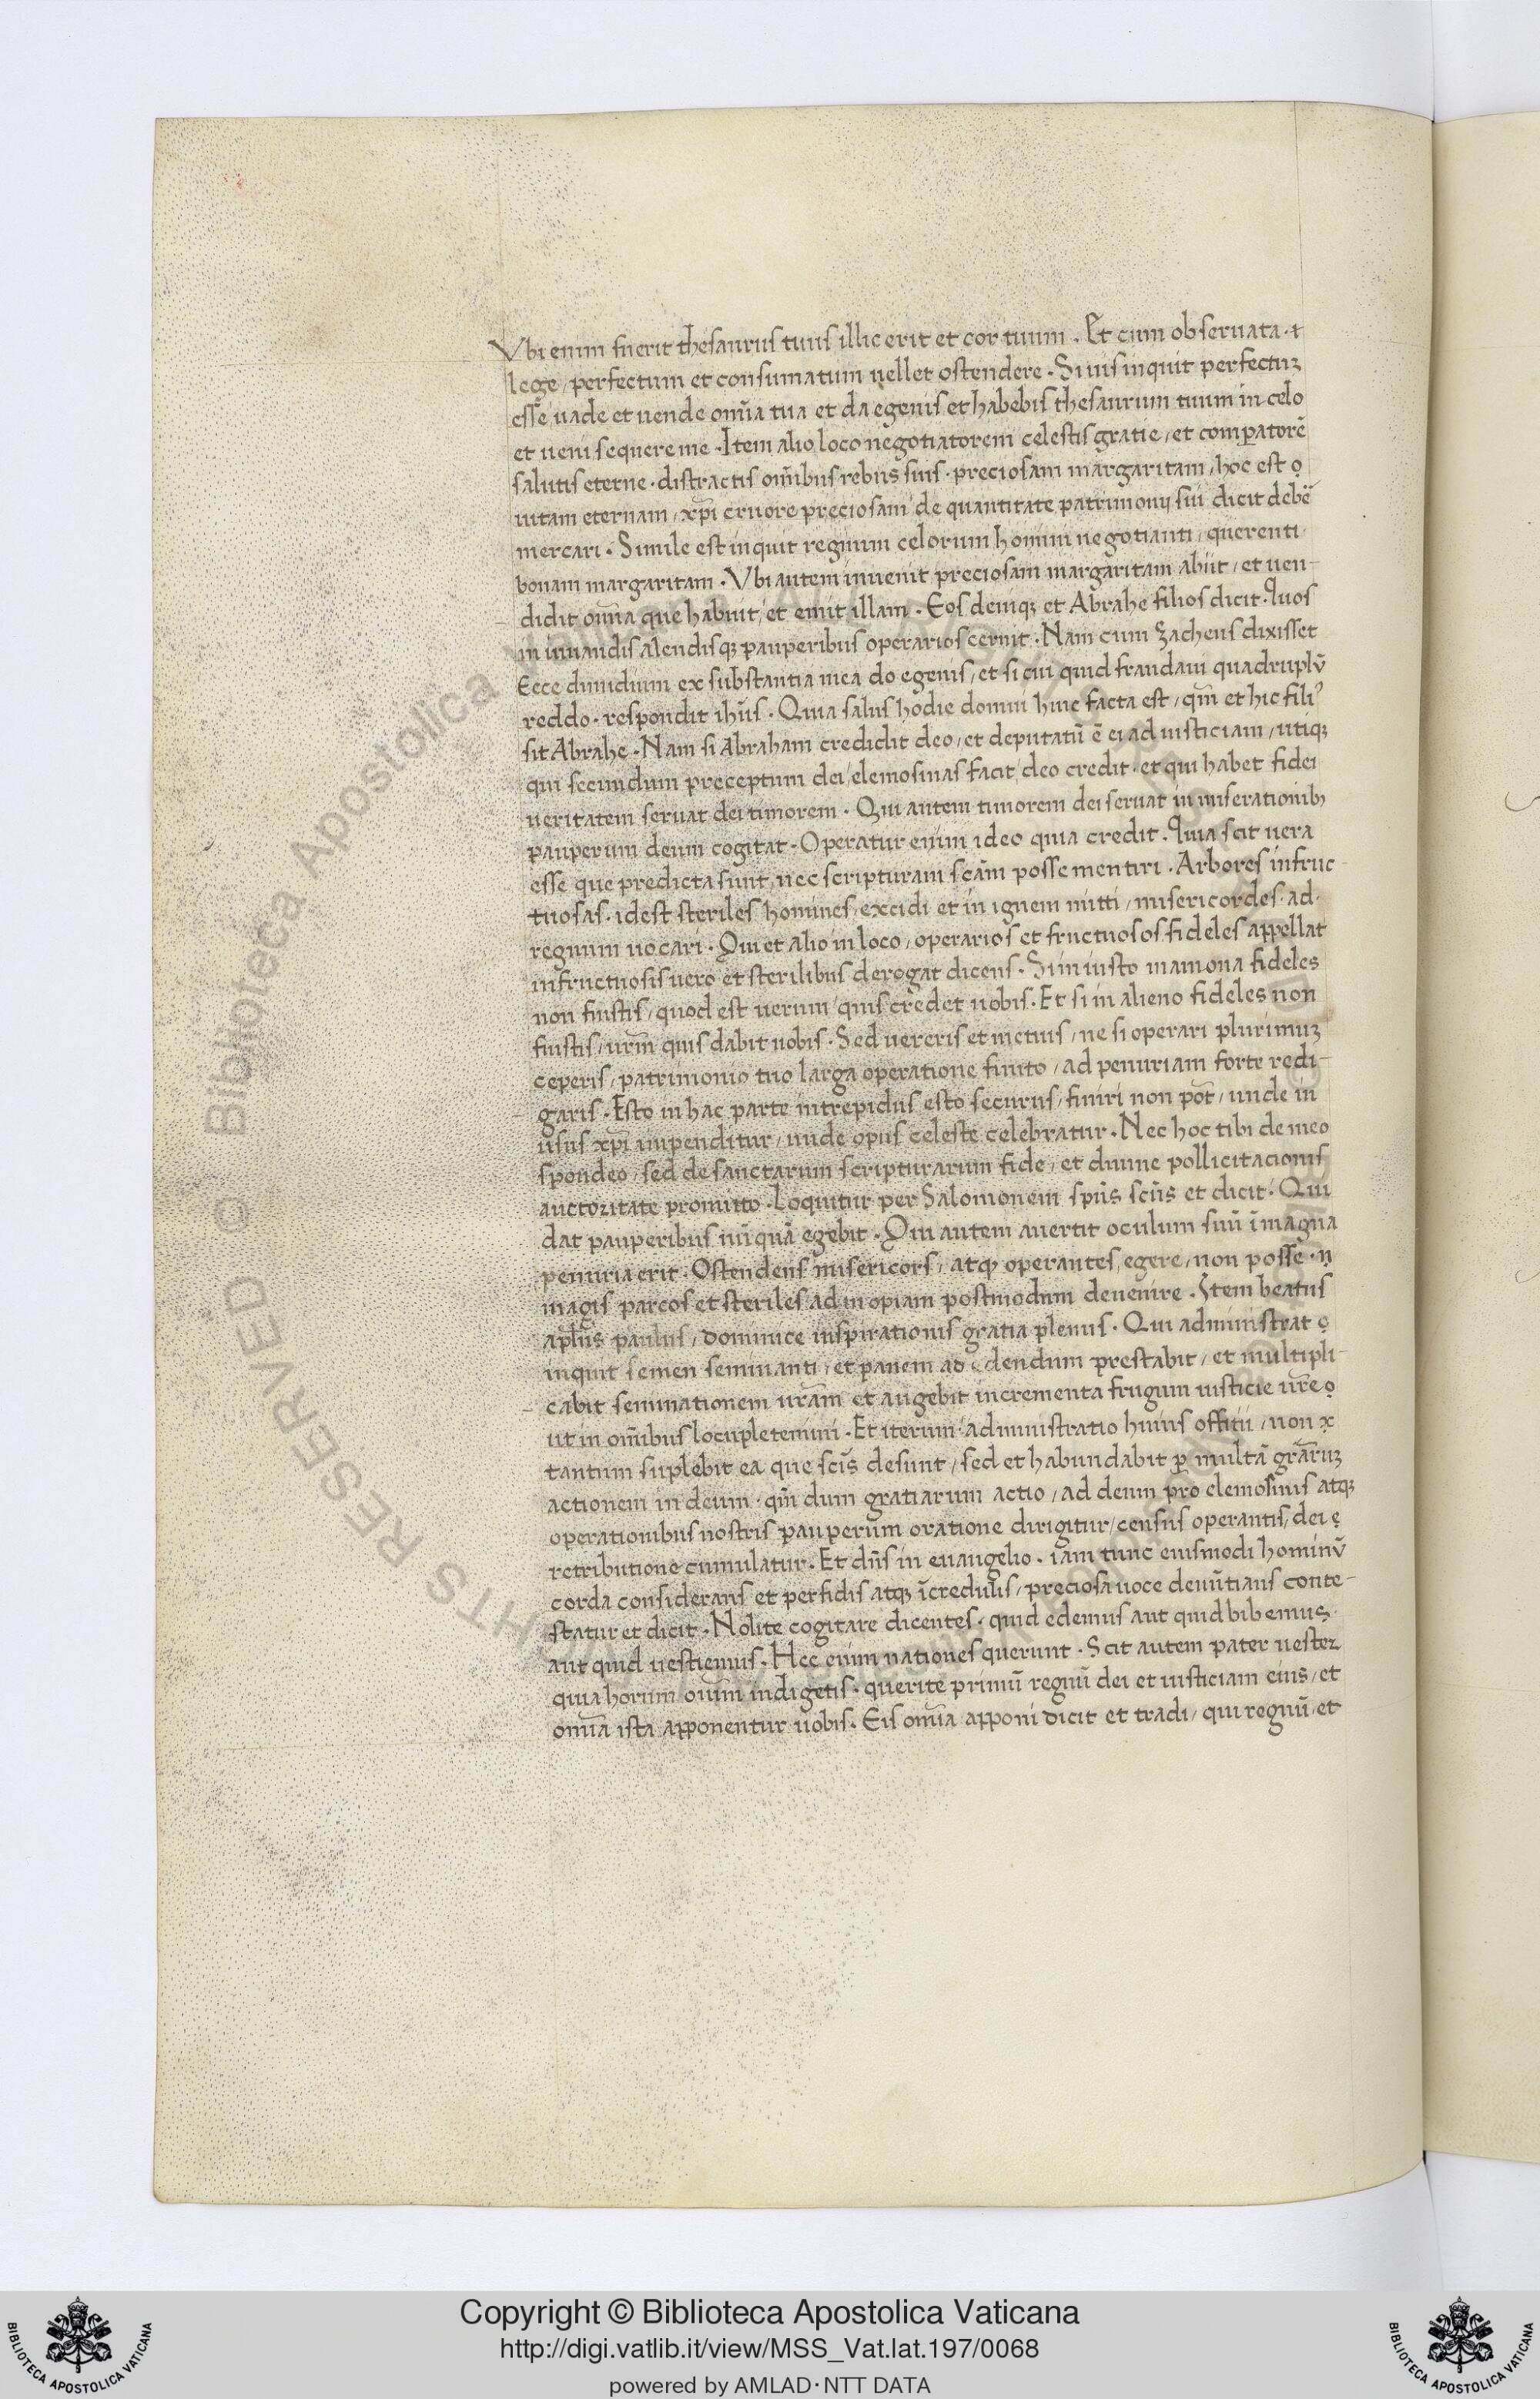 Vbi enim fuerit thesaurus tuus illic erit et cor tuum . Et cum obseruata .
lege / perfectum et consumatum uellet ostendere . Si uis inquit perfectuꝫ
esse uade et uende om̄ia tua et da egenis et habebis thesaurum tuum in celo
et ueni sequere me . Item alio loco negotiatorem celestis gratie / et comꝑatorē
salutis eterne . distractis om̄ibus rebus suis . preciosam margaritam / hoc est
uitam eternam / xp̄i cruore preciosam de quantitate patrimonij sui dicit debē
mercari . Simile est inquit regnum celorum homini negotianti / querenti
bonam margaritam . Vbi autem inuenit preciosam margaritam abiit / et uen-
didit om̄ia que habuit / et emit illam . Eos deniqꝫ et Abrahe filios dicit . Quos
in iuuandis alendisqꝫ pauperibus operarios cernit . Nam cum Zacheus dixisset
Ecce dimidium ex substantia mea do egenis / et si cui quid fraudaui quadruplū
reddo . respondit ihūs . Quia salus hodie domui huic facta est / qm̄ et hic fili⁹
sit Abrahe . Nam si Abraham credidit deo / et deputatū ē ei ad iusticiam / utiqꝫ
qui secundum preceptum dei / elemosinas facit / deo credit . et qui habet fidei
ueritatem seruat dei timorem . Qui autem timorem dei seruat in miserationibꝫ
pauperum deum cogitat . Operatur enim ideo quia credit . Quia scit uera
esse que predicta sunt / nec scripturam scām posse mentiri . Arbores infruc-
tuosas . idest steriles homines / excidi et in ignem mitti / misericordes . ad .
regnum uocari . Qui et alio in loco / operarios et fructuosos fideles appellat
infructuosis uero et sterilibus derogat dicens . Si in iusto mamona fideles
non fuistis / quod est uerum / quis credet uobis . Et si in alieno fideles non
fuistis / urm̄ quis dabit uobis . Sed uereris et metuis / ne si operari plurimuꝫ
ceperis / patrimonio tuo larga operatione finito / ad penuriam forte redi-
garis . Esto in hac parte intrepidus esto securus / finiri non pōt / unde in
usus xp̄i impenditur / unde opus celeste celebratur . Nec hoc tibi de meo
spondeo / sed de sanctarum scripturarum fide / et diuine pollicitacionis
auctoritate promitto . Loquitur per Salomonem sp̄us scūs et dicit . Qui
dat pauperibus nūquā egebit . Qui autem auertit oculum suū ī magna
penuria erit . Ostendens misericors / atqꝫ operantes / egere / non posse .
magis parcos et steriles ad inopiam postmodum deuenire . Item beatus
apl̄us paulus / dominice inspirationis gratia plenus . Qui administrat
inquit semen seminanti / et panem ad edendum prestabit / et multipli-
cabit seminationem urām et augebit incrementa frugum iusticie ur̄e
ut in om̄ibus locupletemini . Et iterum administratio huius offitii / non
tantum suplebit ea que scīs desunt / sed et habundabit ꝑ multā grāruꝫ
actionem in deum . qm̄ dum gratiarum actio / ad deum pro elemosinis atqꝫ
operationibus nostris pauperum oratione dirigitur / census operantis / dei
retributione cumulatur . Et dn̄s in euangelio . iam tunc eiusmodi hominū
corda considerans et perfidis atqꝫ īcredulis / preciosa uoce denūtians conte-
statur et dicit . Nolite cogitare dicentes . quid edemus aut quid bibemus .
aut quid uestiemus . Hec enim nationes querunt . Scit autem pater uester
quia horum oium̄ indigetis . querite primū regnū dei et iusticiam eius / et
om̄ia ista apponentur uobis . Eis om̄ia apponi dicit et tradi / qui regnū / et
Biblioteca Apostolica Vaticana
RIGHTS RESERVED ©
Copyright © Biblioteca Apostolica Vaticana
http://digi.vatlib.it/view/MSS_Vat.lat.197/0068
powered by AMLAD·NTT DATA
BIBLIOTECA APOSTOLICA VATICANA
BIBLIOTECA APOSTOLICA VATICANA